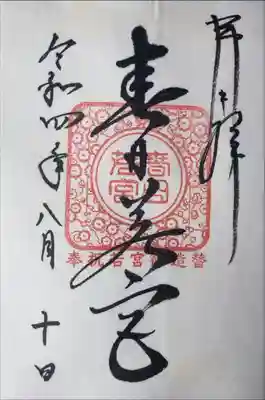 奉拝
春日若宮
春日
若宮
奉祝若宮御造替
令和四年八月十日